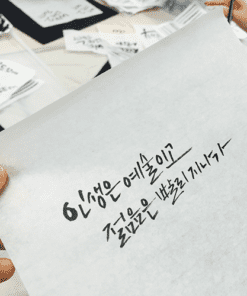 인생은 예술이고
젊음은 빨리 지나가